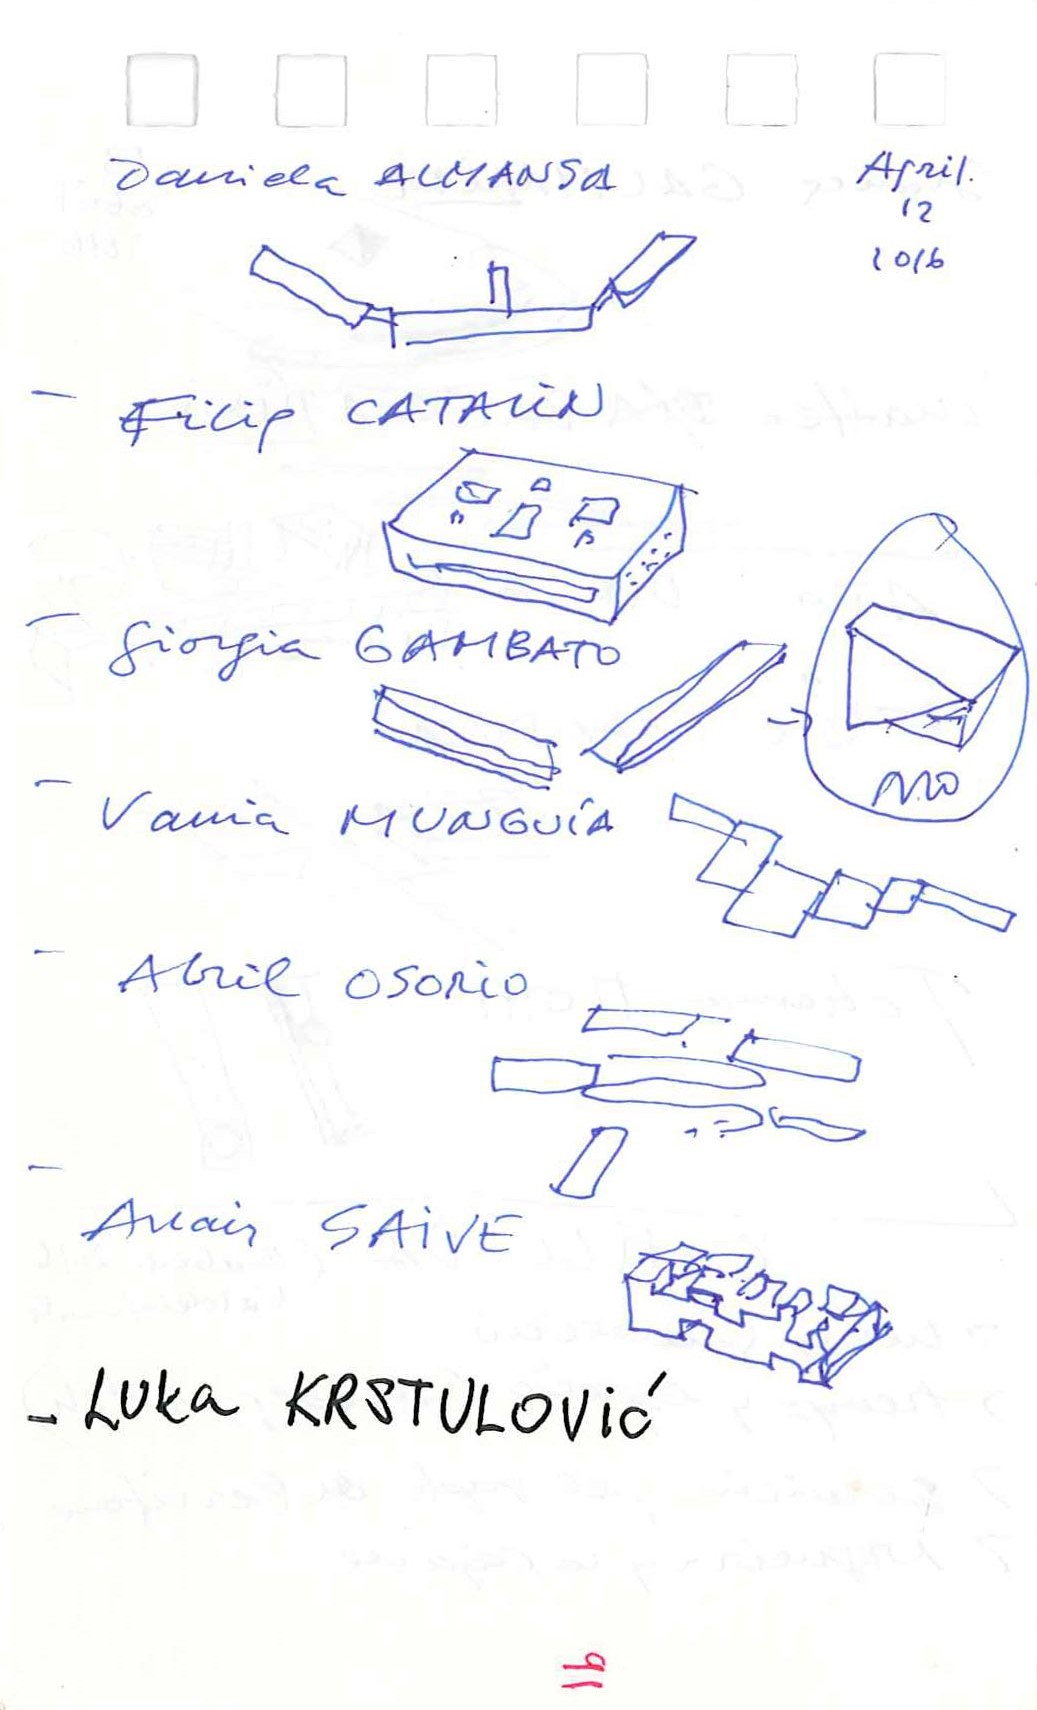 Daniela ALMANSA
April.
12
2016
- Filip CATALIN
- Giorgia GAMBATO
→ NO
- Vania MUNGUÍA
- Abril OSORIO
- Anais SAIVE
- Luka KRSTULOVIĆ
91